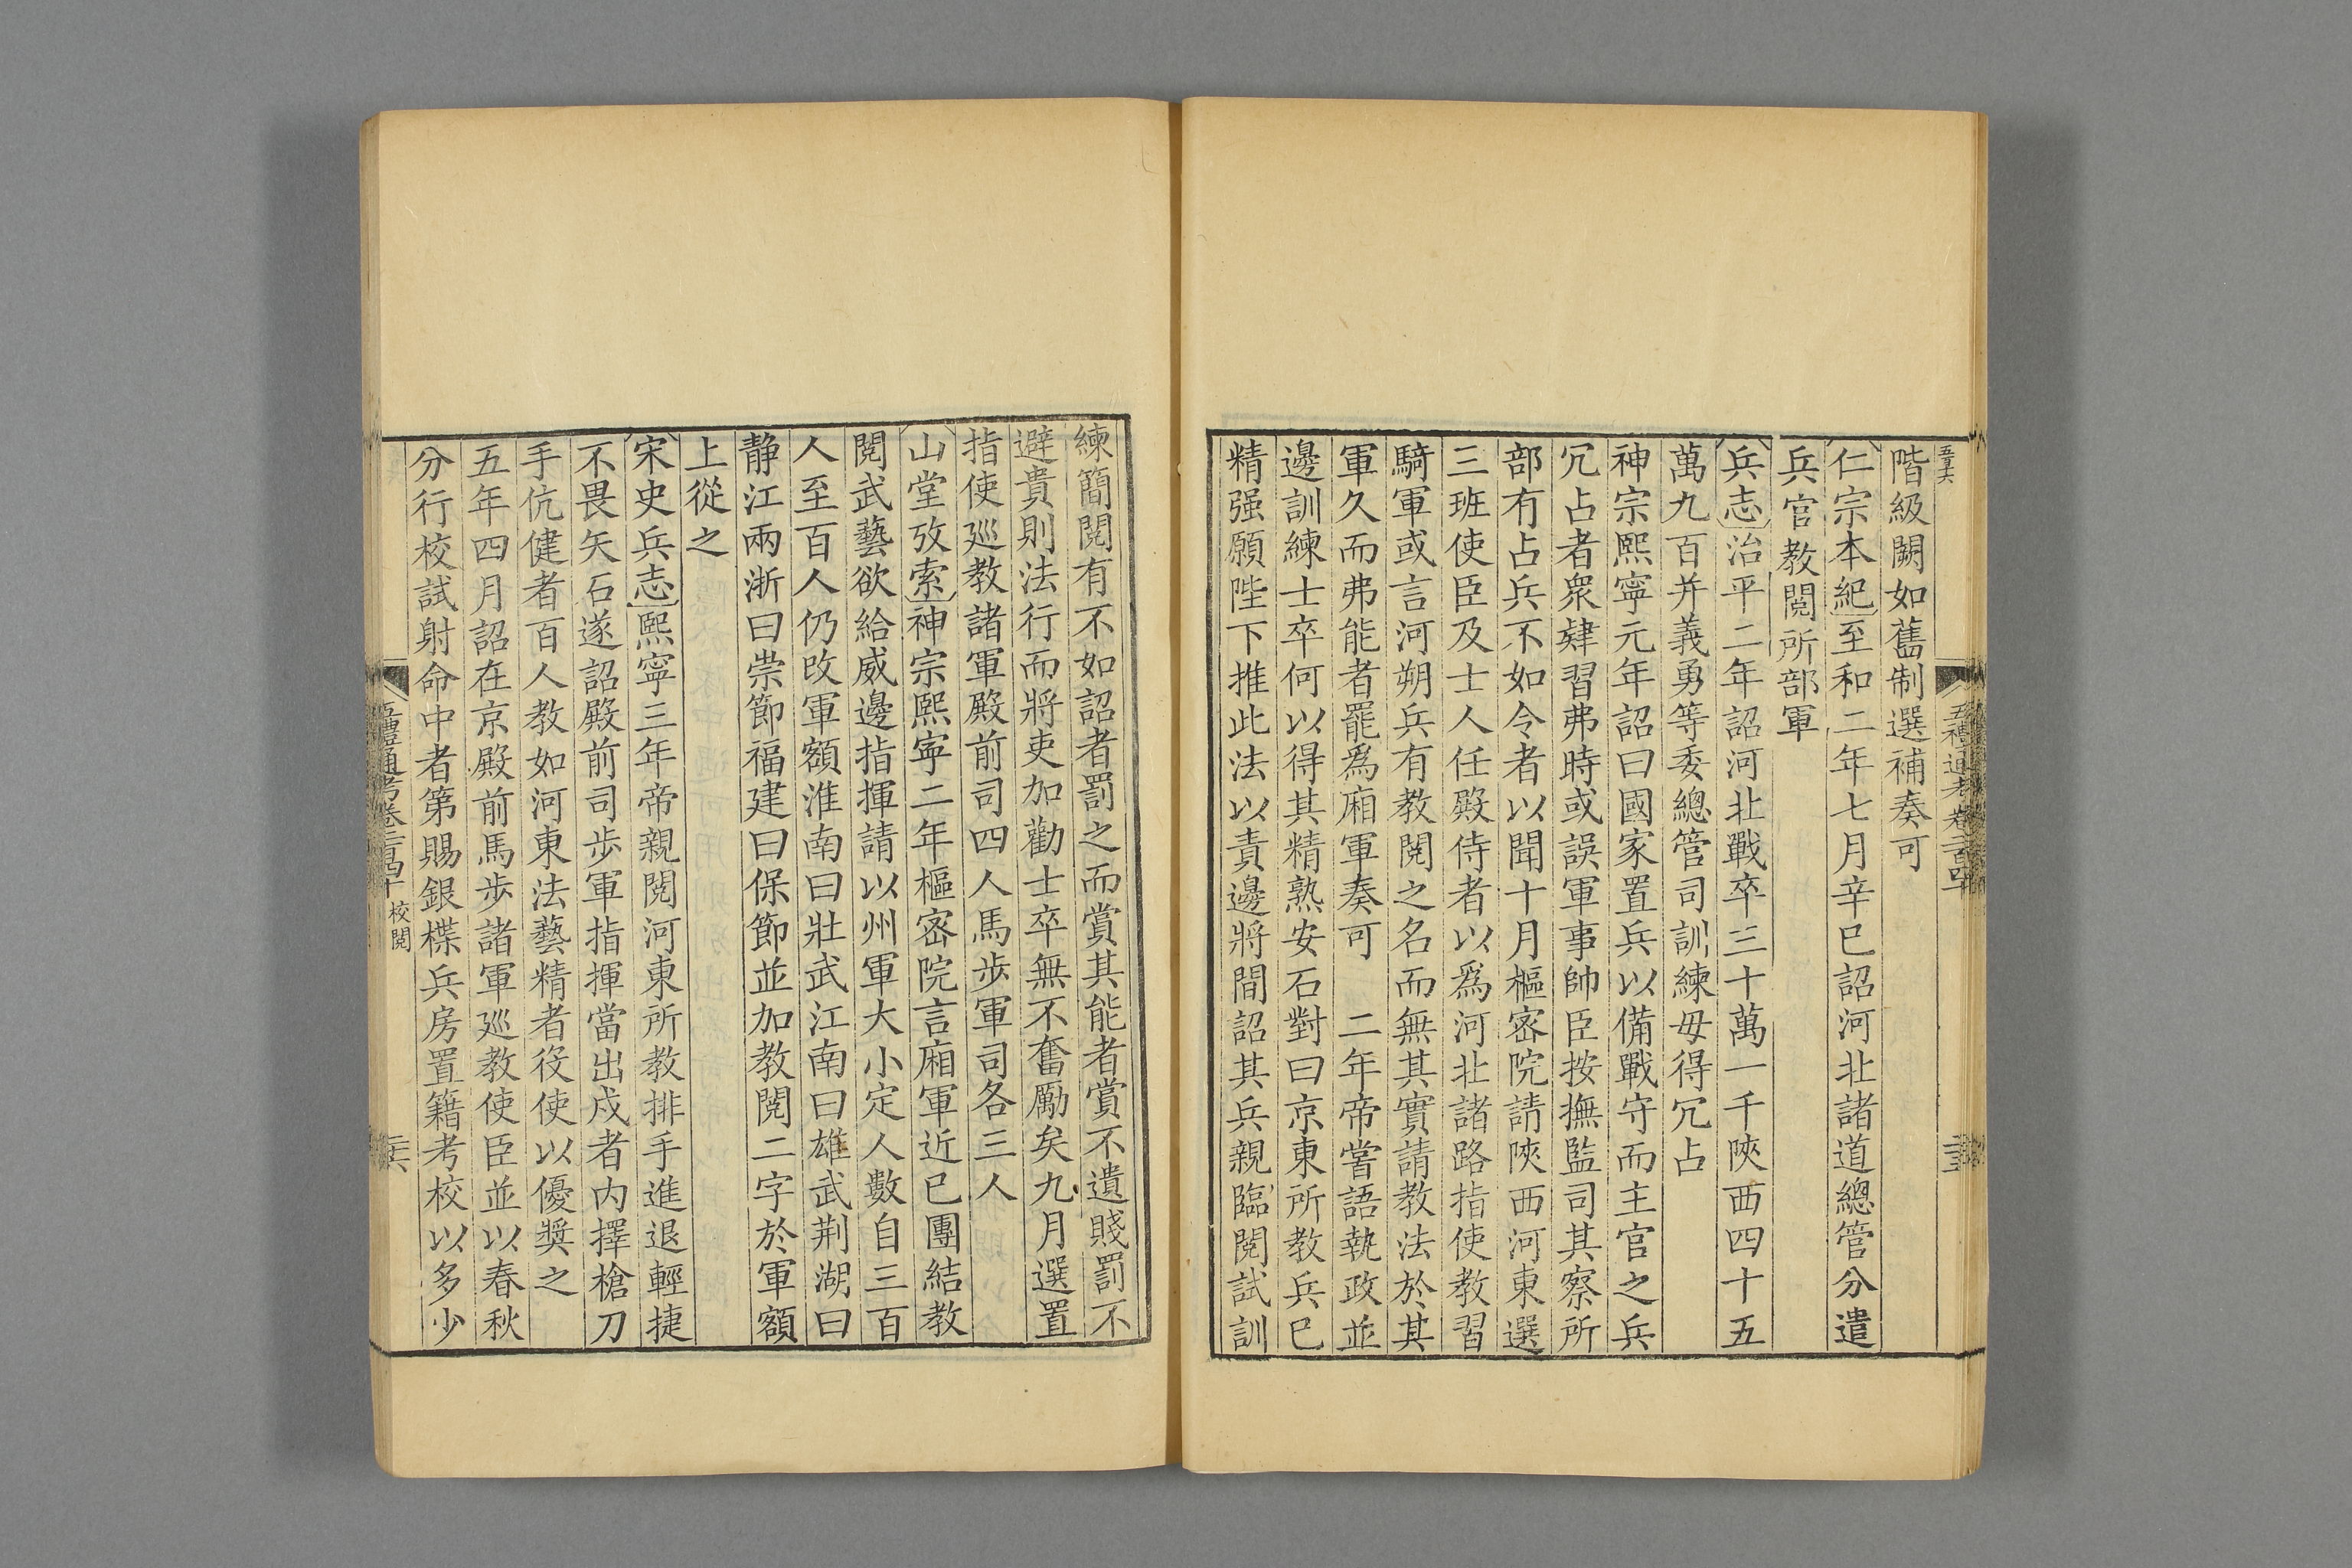 階級闕如舊制選補奏可
仁宗本紀至和二年七月辛巳詔河北諸道總管分遣
兵官教閱所部軍
兵志治平二年詔河北戰卒三十萬一千陝西四十五
萬九百并義勇等委總管司訓練毋得冗占
神宗熙寧元年詔曰國家置兵以備戰守而主官之兵
冗占者衆肄習弗時或誤軍事帥臣按撫監司其察所
部有占兵不如令者以聞十月樞密院請陝西河東選
三班使臣及士人任殿侍者以爲河北諸路指使教習
騎軍或言河朔兵有教閱之名而無其實請教法於其
軍久而弗能者罷爲廂軍奏可　二年帝嘗語執政並
邊訓練士卒何以得其精熟安石對曰京東所教兵已
精强願陛下推此法以責邊將間詔其兵親臨閱試訓
練簡閱有不如詔者罰之而賞其能者賞不遺賤罰不
避貴則法行而將吏加勸士卒無不奮勵矣九月選置
指使巡教諸軍殿前司四人馬步軍司各三人
山堂攷索神宗熙寧二年樞密院言廂軍近已團結教
閱武藝欲給威邊指揮請以州軍大小定人數自三百
人至百人仍改軍額淮南曰壯武江南曰雄武荆湖曰
静江兩浙曰崇節福建曰保節並加教閱二字於軍額
上從之
宋史兵志熙寧三年帝親閱河東所教排手進退輕捷
不畏矢石遂詔殿前司步軍指揮當出戍者内擇槍刀
手伉健者百人教如河東法藝精者役使以優奬之
五年四月詔在京殿前馬步諸軍巡教使臣並以春秋
分行校試射命中者第賜銀楪兵房置籍考校以多少
五禮通考卷二百四十 校閱